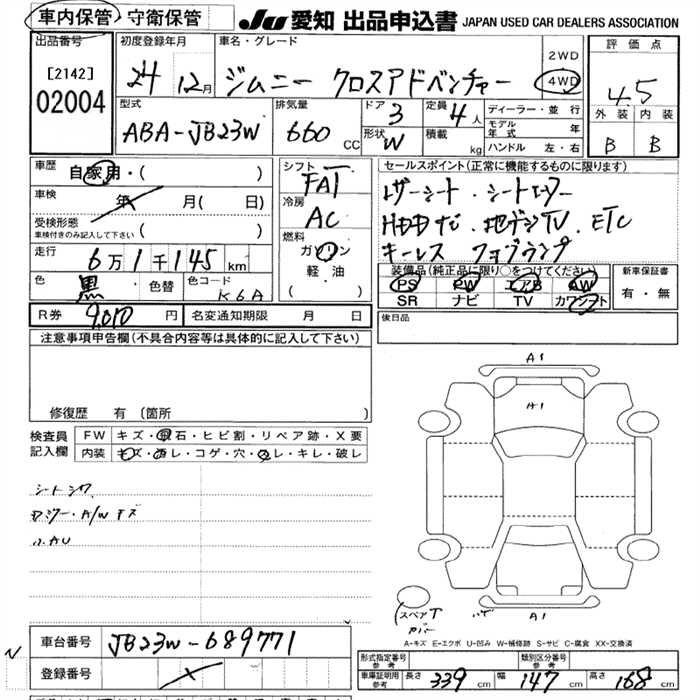 車内保管・守衛保管 JU 愛知 出品申込書 JAPAN USED CAR DEALERS ASSOCIATION
出品番号
[2142]
02004
初度登録年月
24 12月
車名・グレード
ジムニー クロスアドベンチャー
2WD
4WD
評価点
4.5
外装 内装
B B
型式
ABA-JB23W
排気量
660 CC
ドア 3
形状 W
定員 4人
積載 kg
ディーラー・並行
モデル年式 年
ハンドル 左・右
車歴 自家用・( )
車検 年 月( 日)
受検形態
車検付きのみ記入して下さい ( )
走行 6万1千145km
色 黒 色替 色コード K6A
シフト FAT
冷房 AC
燃料
ガソリン
軽油
( )
セールスポイント(正常に機能するものに限ります)
レザーシート・シートヒーター
HDDナビ・地デジTV・ETC
キーレス フォグランプ
装備品(純正品に限り○をつけてください)
PS PW エアB AW
SR ナビ TV カワシート
新車保証書
有・無
R券 9,010円 名変通知期限 月 日
後日品
注意事項申告欄(不具合内容等は具体的に記入して下さい)
修復歴 有(箇所
検査員記入欄
FW キズ・飛石・ヒビ割・リペア跡・X要
内装 キズ・汚レ・コゲ・穴・スレ・キレ・破レ
シートシワ
A/Wキズ
小AU
A1
A1
A1
スペアT
カバー
A-キズ E-エクボ U-凹み W-補修跡 S-サビ C-腐食 XX-交換済
車台番号 JB23W-689771
登録番号
N
形式指定番号 参考
類別区分番号 参考
車庫証明用 参考 長さ 339cm 幅 147cm 高さ 168cm